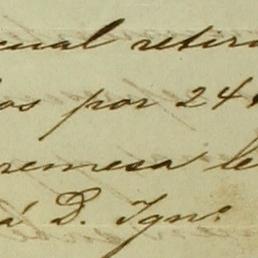 cual retir
os por 24
remesa le
á D. Ign.º